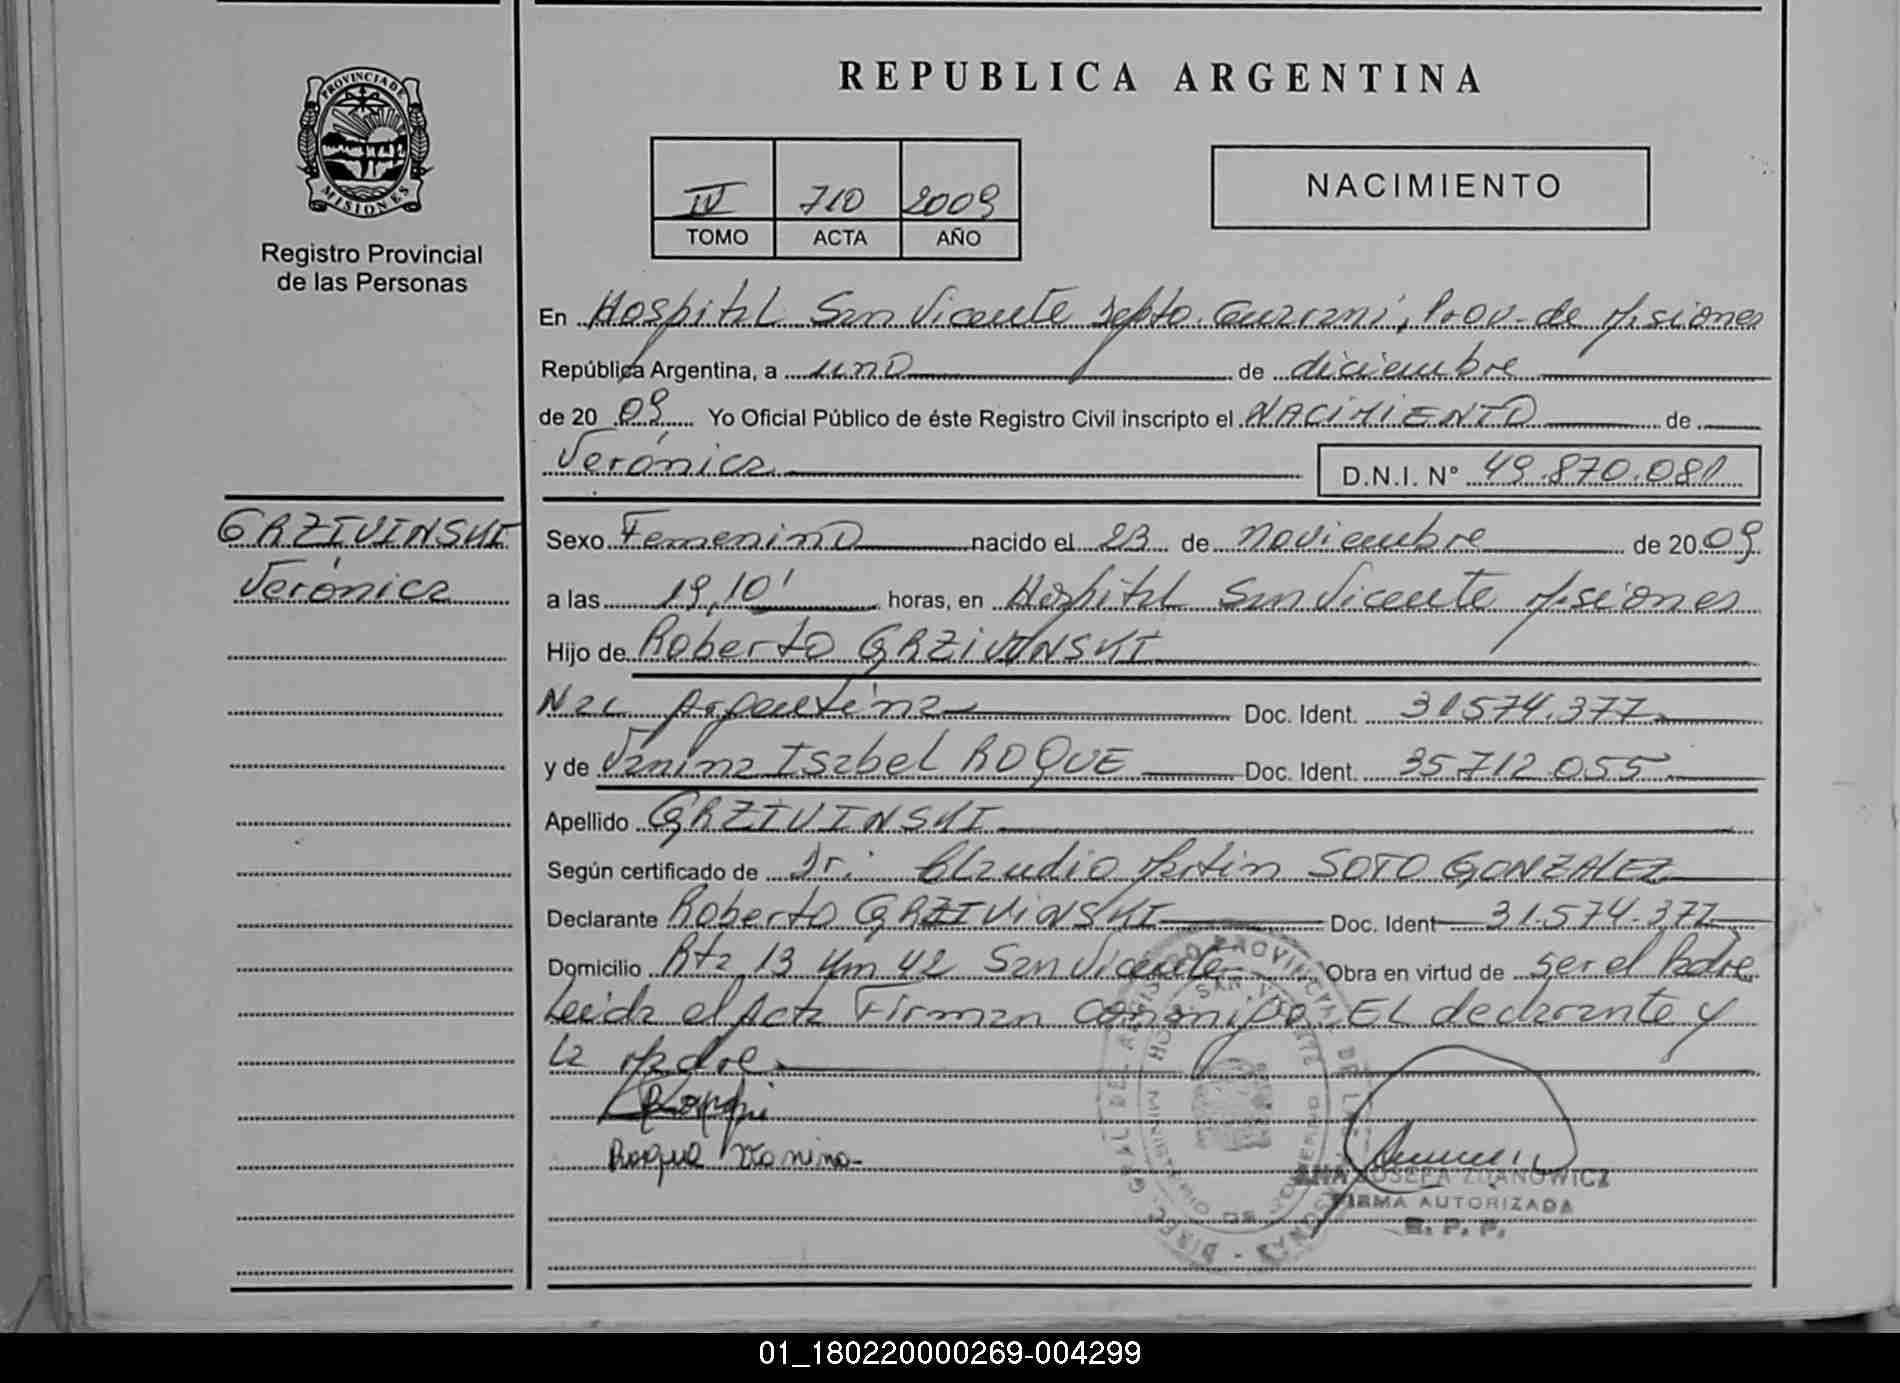 REPUBLICA ARGENTINA
PROVINCIA DE MISIONES
Registro Provincial
de las Personas
IV 710 2009
TOMO ACTA AÑO
NACIMIENTO
En Hospital San Vicente Depto. Guarani, Prov. de Misiones
República Argentina, a uno de diciembre
de 20 09 Yo Oficial Público de éste Registro Civil inscripto el NACIMIENTO de
Verónica D.N.I. Nº 49.870.081
GRZIVINSKI
Verónica
Sexo Femenino nacido el 23 de noviembre de 20 09
a las 19,10' horas, en Hospital San Vicente Misiones
Hijo de Roberto GRZIVINSKI
Nac Argentina Doc. Ident. 31.574.377
y de Vanina Isabel ROQUE Doc. Ident. 35.712.055
Apellido GRZIVINSKI
Según certificado de Dr. Claudio Martin SOTO GONZALEZ
Declarante Roberto GRZIVINSKI Doc. Ident 31.574.377
Domicilio Rta 13 Km 42 San Vicente Obra en virtud de ser el Padre
Leida el Acta Firman conmigo EL declarante y
La Madre
Roque Vanina
ANA JOSEFA ZDANOWICZ
FIRMA AUTORIZADA
R. P. P.
01_180220000269-004299